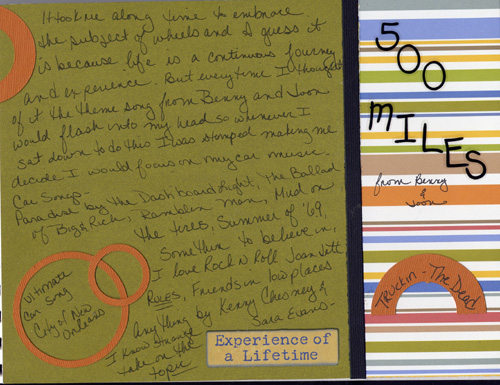 It took me along time to embrace
the subject of wheels and I guess it
is because life is a continuous journey
and experience. But everytime I thought
of it the theme song from Benny and Joon
would flash into my head so whenever I
sat down to do this I was stomped making me
decide I would focus on my car music.
Car Songs-
Paradise by the Dashboard Light, The Ballad
of Big & Rich, Ramblin Man, Mud on
the tires, Summer of '69,
Somethin to believe in,
I love Rock n Roll Joan Jett,
Friends in low places
Any thing by Kenny Chesney &
Sara Evans-
I know strange
take on the
topic
Ultimate
Car Song
City of New
Orleans
Experience of
a Lifetime
500
MILES
from Benny
&
Joon
Truckin - The Dead